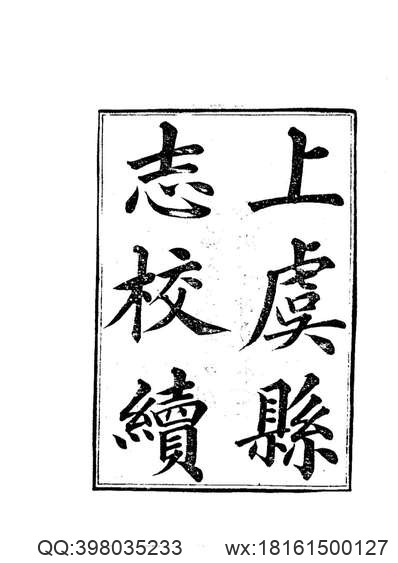 上虞縣
志校續
QQ:398035233 wx:18161500127